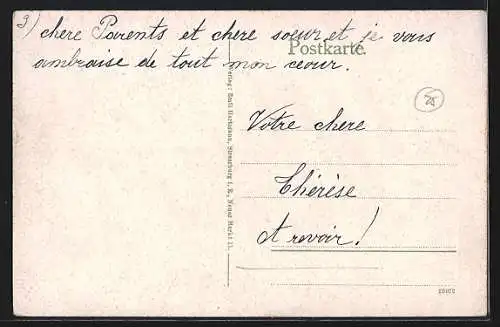 3) chere Parents et chere soeur et je vous
Postkarte.
ambraise de tout mon ceour.
25
Votre chere
Thérèse
At revoir!
Verlag: Emil Hartmann, Strassburg i. E., Neuer Markt 11.